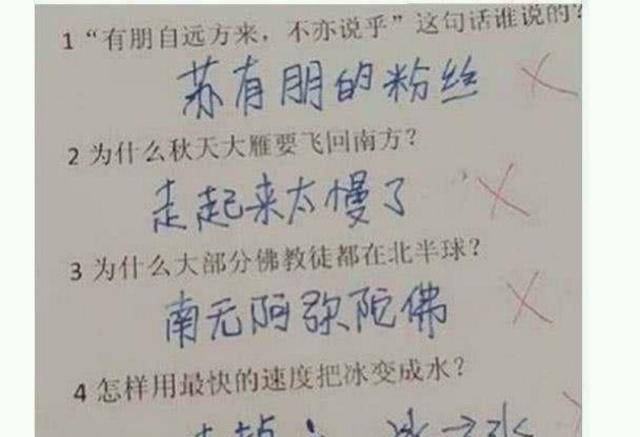 1 “有朋自远方来，不亦说乎”这句话谁说的?
苏有朋的粉丝
2 为什么秋天大雁要飞回南方?
走起来太慢了
3 为什么大部分佛教徒都在北半球?
南无阿弥陀佛
4 怎样用最快的速度把冰变成水?
冰→水